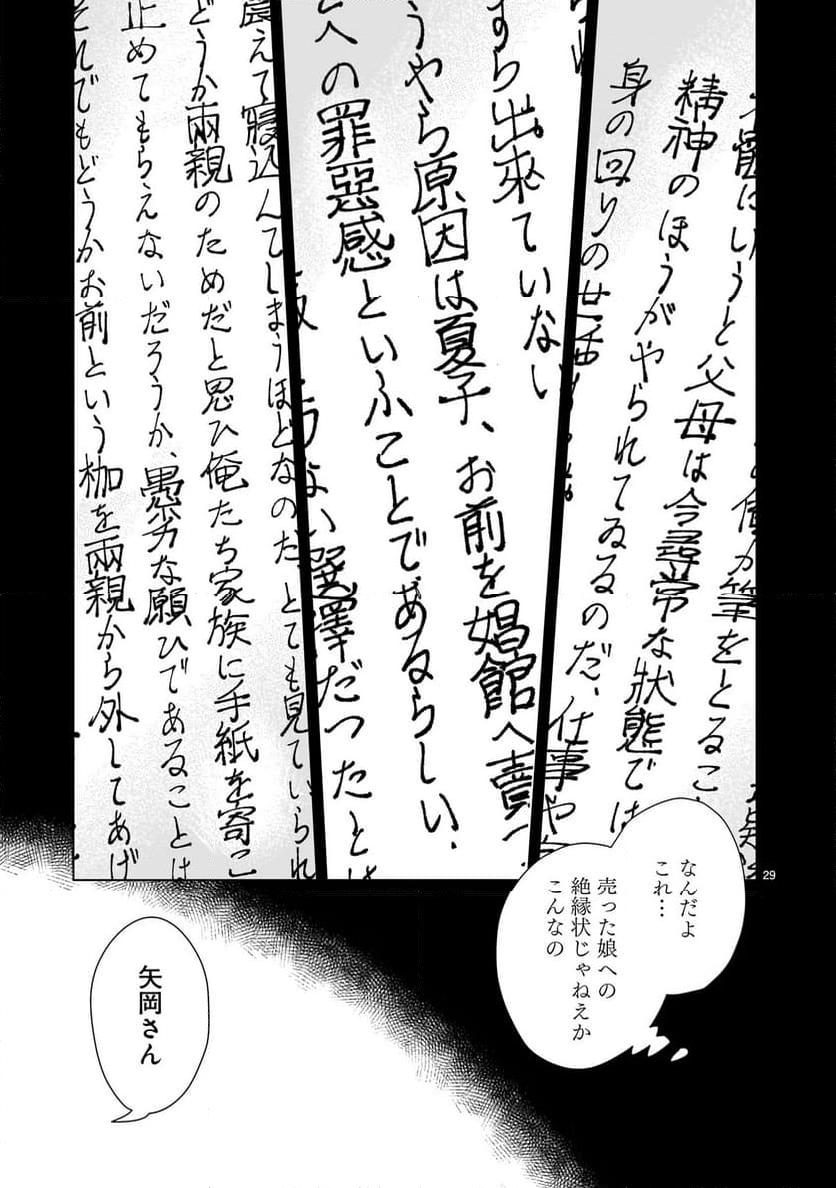 の債が筆をとるこ
骸にいうと父母は今尋常な状態では
精神のほうがやられてゐるのだ、仕事や
身の回りの世話
すら出來ていない
うやら原因は夏子、お前を娼館へ賣
への罪惡感といふことであるらしい、
ない選擇だったとは
震えて寝込んでしまうほどなのだ、とても見ていられ
どうか兩親のためだと思ひ俺たち家族に手紙を寄こ
止めてもらえないだろうか、愚劣な願ひであることは
それでもどうかお前という枷を兩親から外してあげ
29
なんだよ
これ…
売った娘への
絶縁状じゃねえか
こんなの
矢岡さん